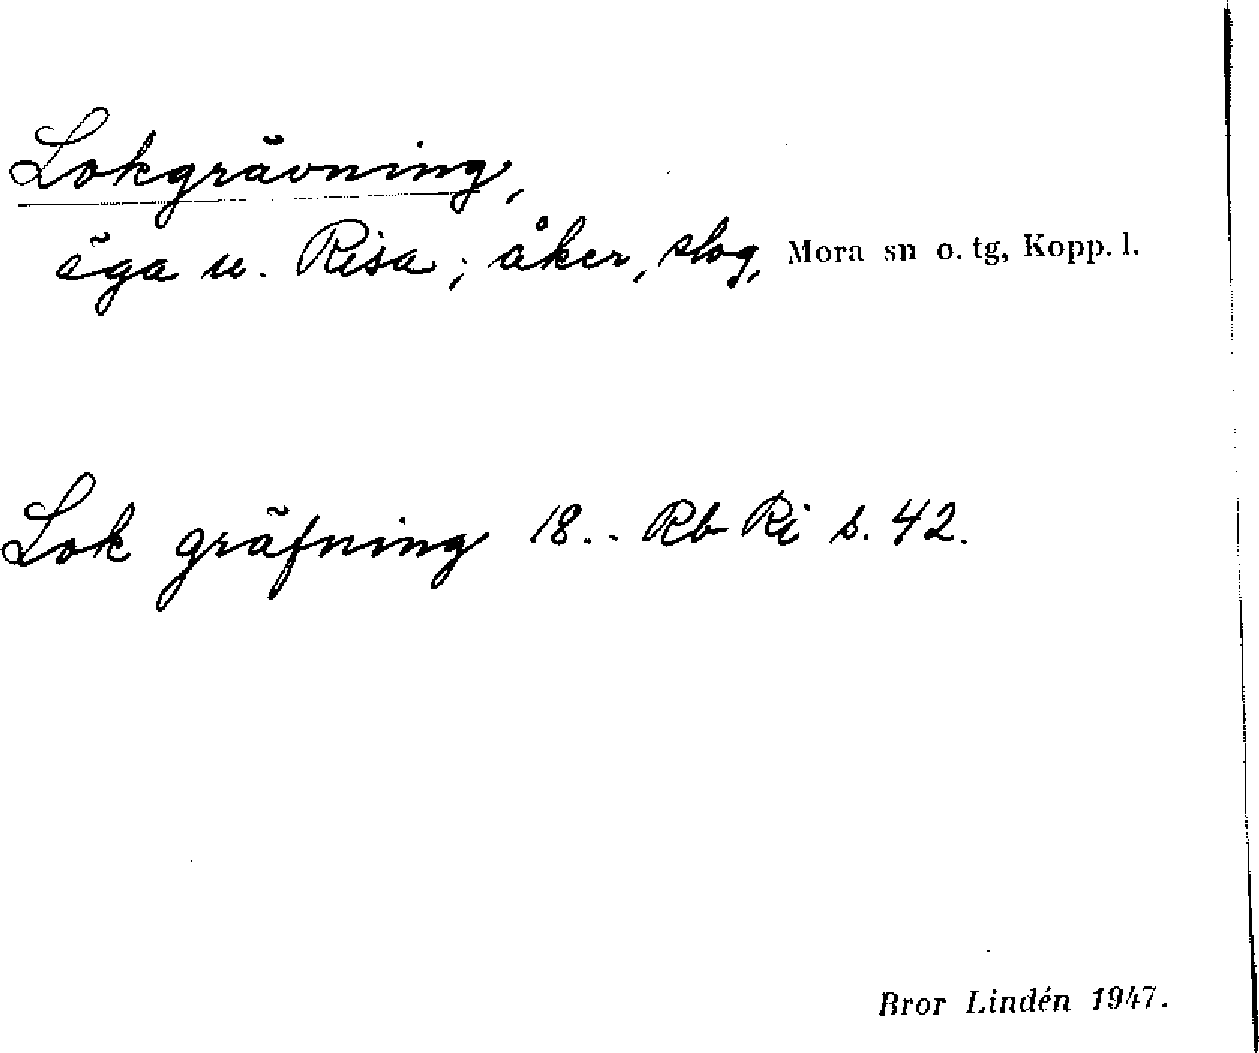 Lokgrävning,
äga u. Risa; åker, slog, Mora sn o. tg, Kopp. l.
Lok gräfning 18.. Rb Ri s. 42.
Bror Lindén 1947.